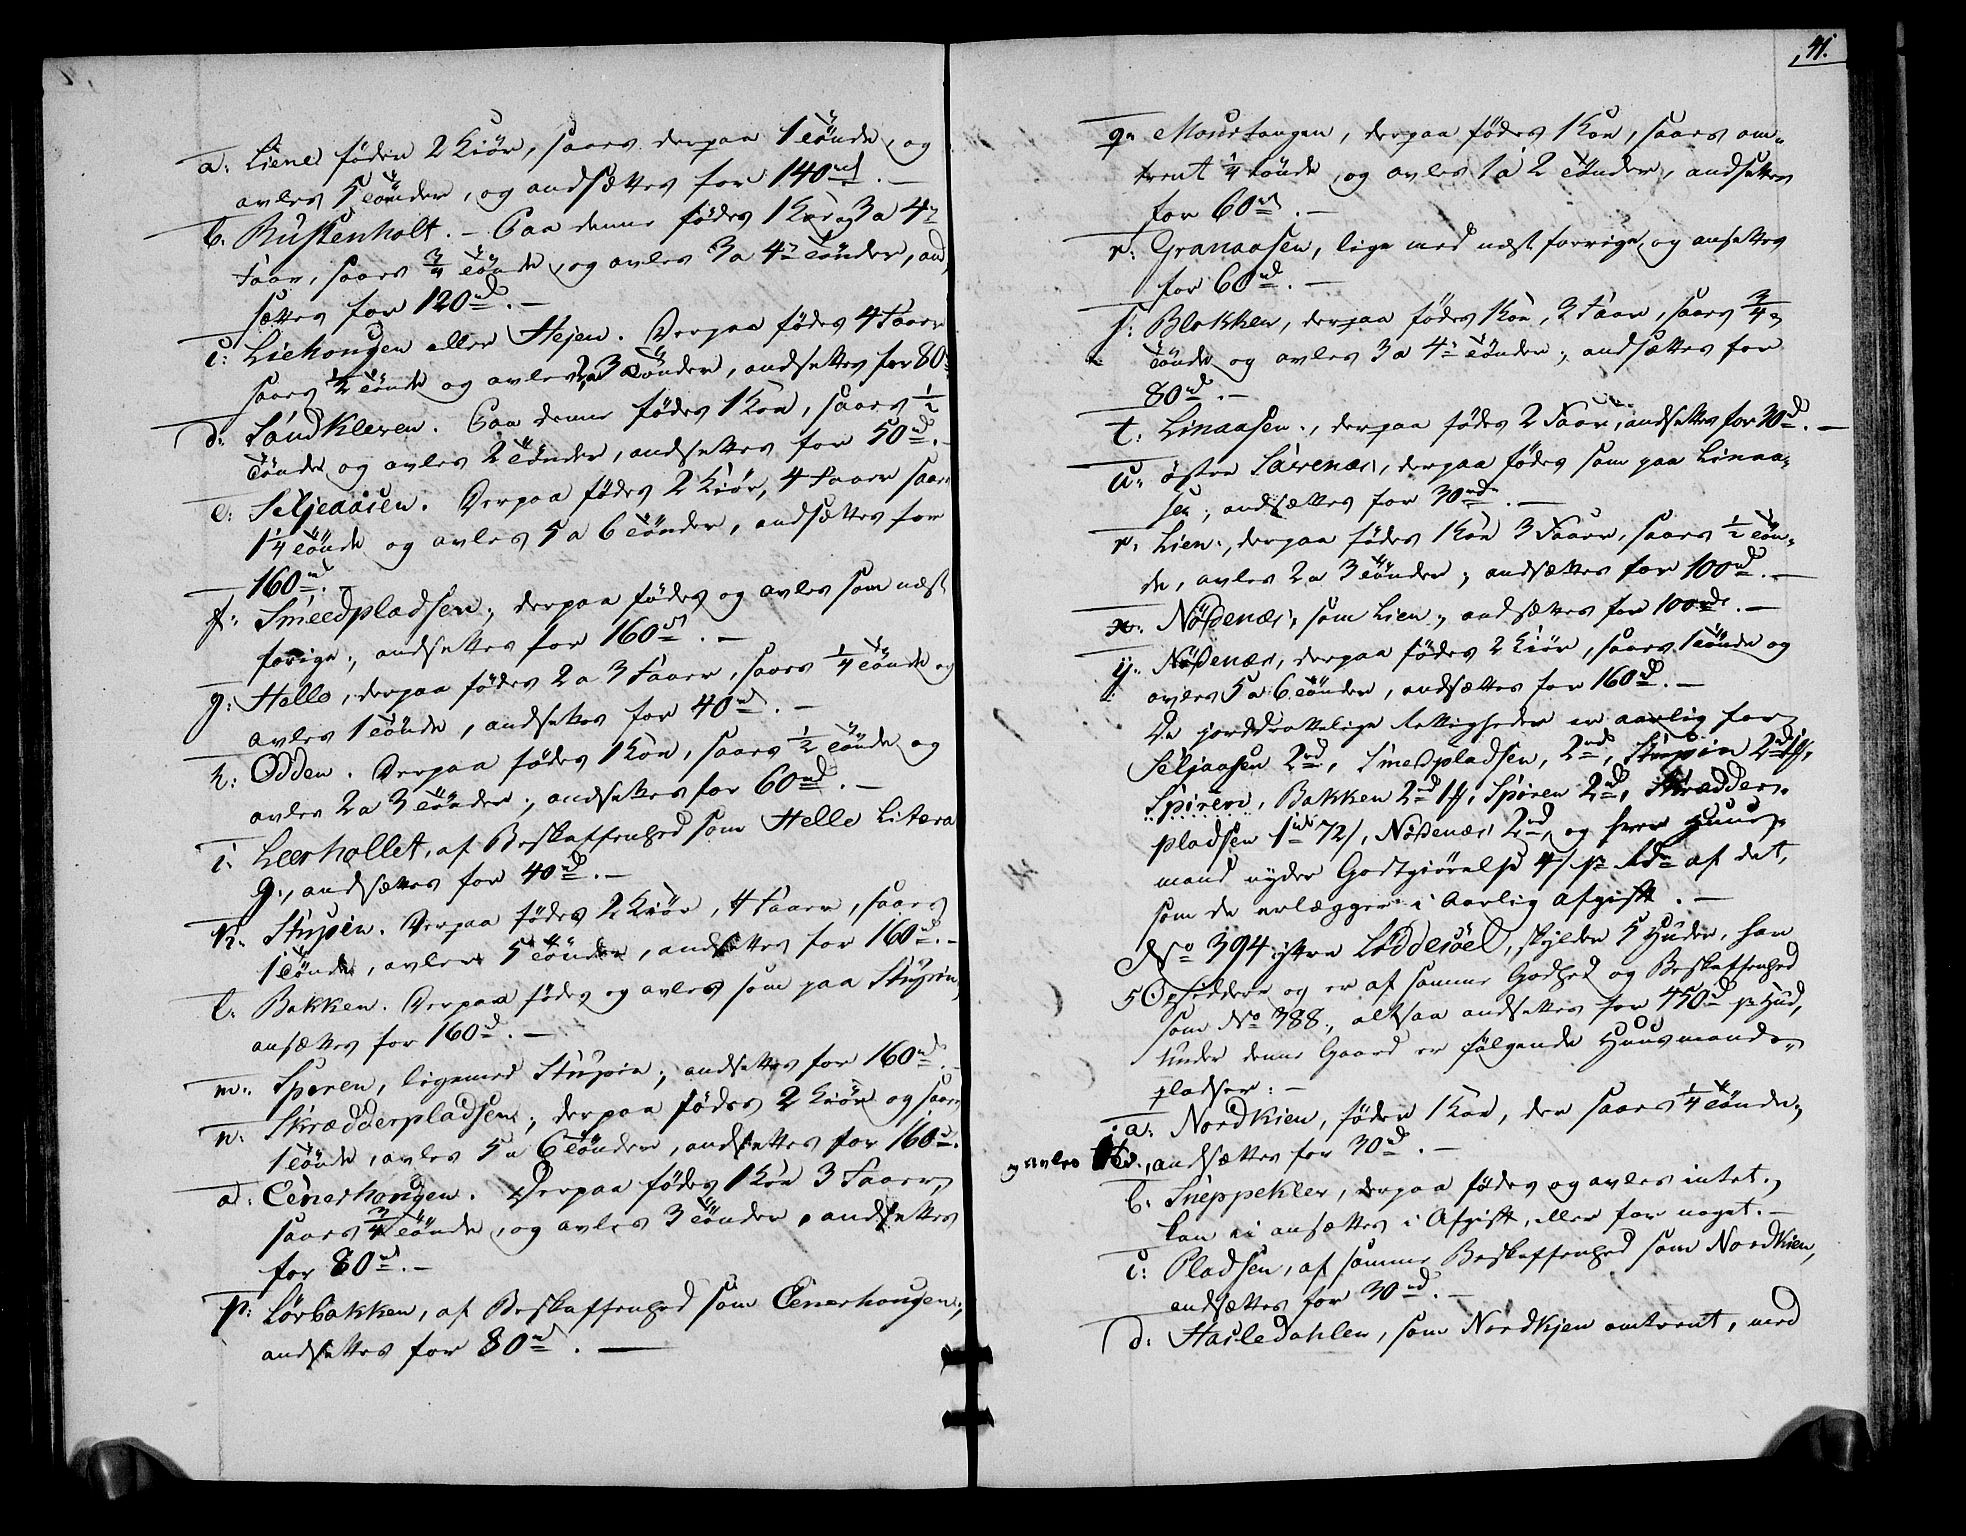 a: Liene föder 2 Kiör, saaes derpaa 1 tönde, og
avles 5 tönder, og andsættes for 140 rd. —
b. Bustenholt. — Paa denne födes 1 Koe og 3 a 4
Faar, saaes 3/4 tönde, og avles 3 a 4 tönder, and
sættes for 120 rd. —
c: Liehougen eller Hejen. Derpaa födes 4 Faar
saaes 1/2 tönde og avles 2 a 3 tönder, andsættes for 80
d: Sandkleven. Paa denne födes 1 Koe, saaes 1/2
tönde og avles 2 tönder, andsættes for 50 rd. —
e: Seljeaasen. Derpaa födes 2 Kiör, 4 Faarer saaes
1 1/4 tönde og avles 5 a 6 tönder, andsættes for
160 rd. —
f: Smeedpladsen, derpaa födes og avles som næst
forige, andsættes for 160 rd. —
g: Helle, derpaa födes 2 a 3 Faarer, saaes 1/4 tönde og
avles 1 tönde, andsættes for 40 rd. —
h: Odden. Derpaa födes 1 Koe, saaes 1/2 tönde og
avles 2 a 3 tönder, andsættes for 60 rd. —
i: Leerhollet, af Beskaffenhed som Helle Litera
g., andsættes for 40 rd. —
k: Stupen. Derpaa födes 2 Kiör, 4 Faarer, saaes
1 tönde, avler 5 tönder, andsættes for 160 rd. —
l: Bakken. Derpaa födes og avles som paa Stupen,
ansættes for 160 rd. —
m: Speren, ligemed Stupen, andsættes for 160 rd. —
n: Skrædderpladsen, derpaa födes 2 Kiör og saaes
1 tönde, avles 5 a 6 tönder, andsættes for 160 rd.
o: Eenerhougen. Derpaa födes 1 Koe 3 Faarer,
saaes 3/4 tönde, og avles 3 tönder, andsættes
for 80 rd. —
p: Lörbakken, af Beskaffenhed som Eenerhougen,
andsættes for 80 rd. —
41.
q: Mourtangen, derpaa födes 1 Koe, saaes om-
trent 1/4 tönde, og avles 1 a 2 tönder, andsættes
for 60 rd. —
r: Granaasen, lige med næst forrige, og ansættes
for 60 rd. —
s: Blokken, derpaa födes 1 Koe, 3 Faar, saaes 3/4
tönde og avles 3 a 4 tönder, andsættes for
80 rd. —
t: Linaasen, derpaa födes 2 Faar, andsættes for 30 rd. —
u: östre derpaa födes som paa Linaa-
sen, andsættes for 30 rd. —
v: Lien, derpaa födes 1 Koe 3 Faarer, saaes 1/2 tön-
de, avles 2 a 3 tönder, andsættes for 100 rd. —
x: Nössenæs, som Lien, andsættes for 100 rd. —
y: Nössenæs, derpaa födes 2 Kiör, saaes 1 tönde og
avles 5 a 6 tönder, andsættes for 160 rd. —
De jorddrottelige Rettigheder er aarlig for
Seljaasen 2 rd, Smedpladsen, 2 rd, Stupen 2 rd
Bakken 2 rd Spören 2 rd, Skrædder-
pladsen 1 rd 72 s, Nössenæs 2 rd, og hver Huus-
mand nyder Godtgiörelse 4 s pr rd af det,
som de erlægger i aarlig Afgift. —
No 394 ytre Löddesöel, skylder 5 Huder, har
5 Opsiddere og er af samme Godhed og Beskaffenhed
som No 388, altsaa andsættes for 450 rd pr Hud,
under denne Gaard er fölgende Huusmands-
pladser: —
a: Nordkien, föder 1 Koe, der saaes 1/4 tönde,
og avles andsættes for 30 rd. —
b: Sneppekler, derpaa födes og avles intet,
kan ei ansættes i Afgift, eller for noget. —
c: Pladsen, af samme Beskaffenhed som Nordkien,
andsættes for 30 rd. —
d: Hasledahlen, som Nordkjen omtrent, med